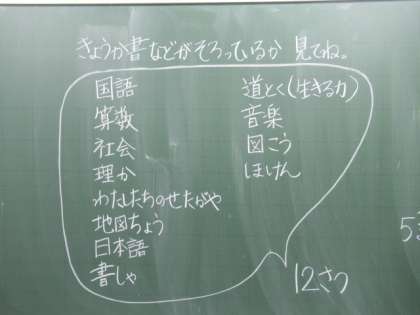 きょうか書などがそろっているか 見てね。
国語
算数
社会
理か
わたしたちのせたがや
地図ちょう
日本語
書しゃ
道とく(生きる力)
音楽
図こう
ほけん
12さつ